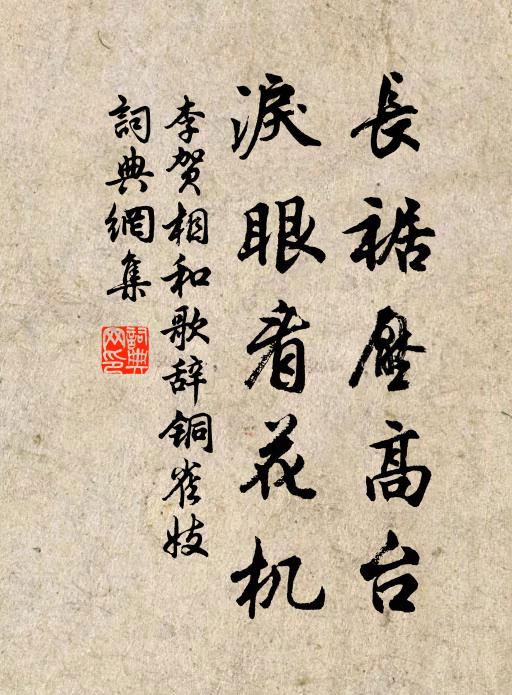 長裾壓高台
淚眼看花机
李贺相和歌辞铜雀妓
詞典網集
詞典网印